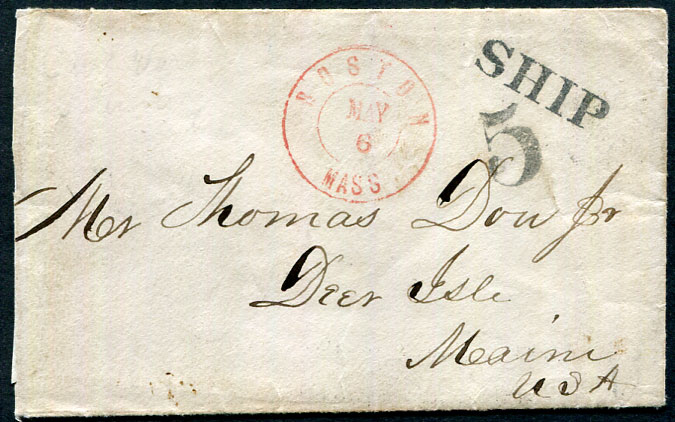 BOSTON
MAY
6
MASS
SHIP
5
Mr Thomas Dow Jr
Deer Isle
Maine
USA